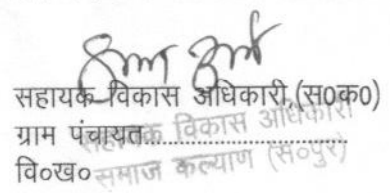 सहायक विकास अधिकारी,(स0क0)
ग्राम पंचायत........................
सहायक विकास अधिकारी
वि०ख०
समाज कल्याण (स०पुर)